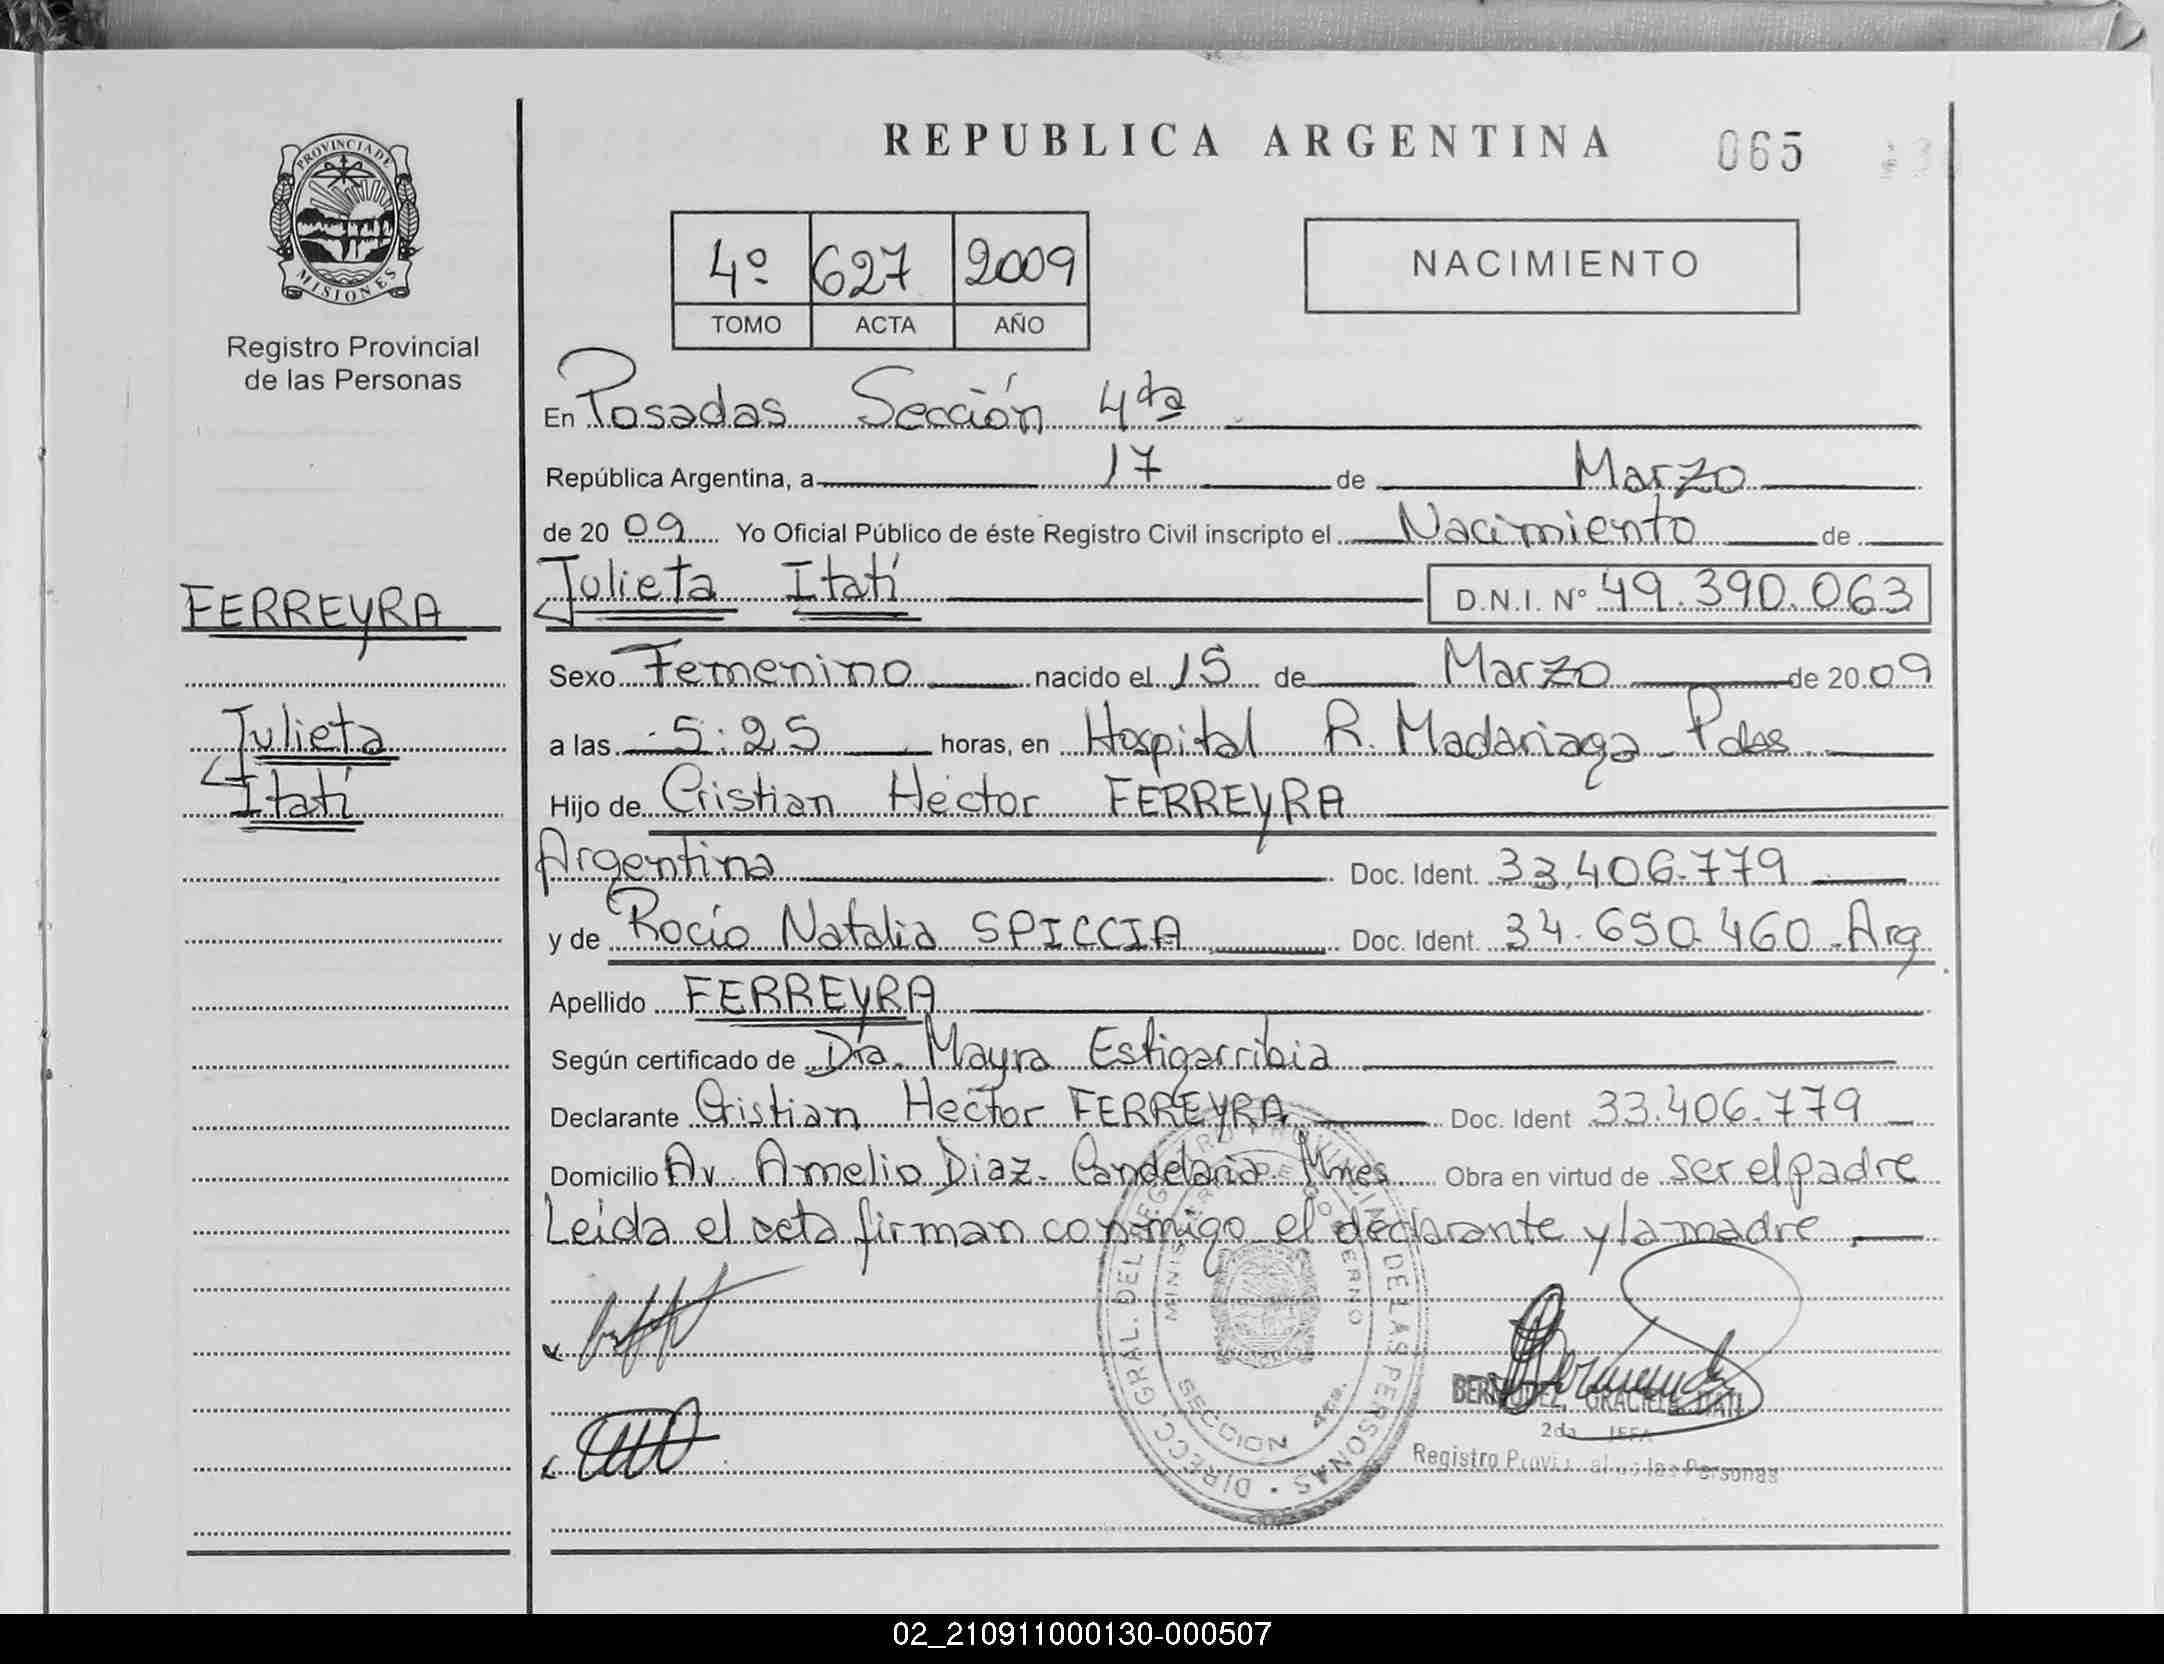 REPUBLICA ARGENTINA 065
PROVINCIA DE
MISIONES
Registro Provincial
de las Personas
4º 627 2009
TOMO ACTA AÑO
NACIMIENTO
En Posadas Sección 4ta
República Argentina, a 17 de Marzo
de 20 09 Yo Oficial Público de éste Registro Civil inscripto el Nacimiento de
Julieta Itatí D.N.I. Nº 49.390.063
FERREYRA
Julieta
Itatí
Sexo Femenino nacido el 15 de Marzo de 20 09
a las 5:25 horas, en Hospital R. Madariaga - Pdas
Hijo de Cristian Héctor FERREYRA
Argentina Doc. Ident. 33.406.779
y de Rocío Natalia SPICCIA Doc. Ident. 34.650.460 - Arg.
Apellido FERREYRA
Según certificado de Dra. Mayra Estigarribia
Declarante Cristian Héctor FERREYRA Doc. Ident 33.406.779
Domicilio Av. Amelio Diaz. Candelaria. Mnes Obra en virtud de ser el padre
Leida el acta firman conmigo el declarante y la madre.
DIRECC GRAL. DEL REGISTRO PROVINCIAL DE LAS PERSONAS
MINISTERIO DE GOBIERNO
SECCION 4ta.
BERMUDEZ, GRACIELA ITATI
2da JEFA
Registro Provincial de las Personas
02_210911000130-000507